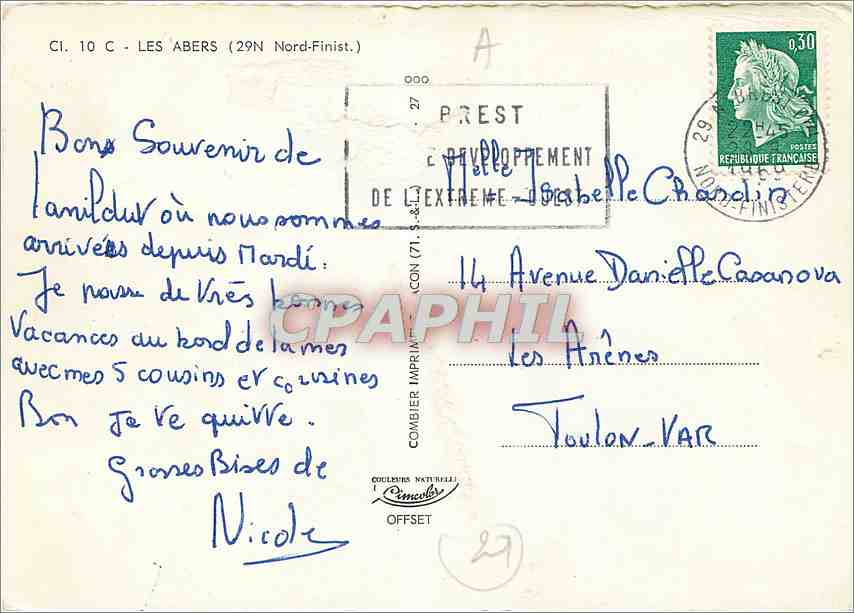 Cl. 10 C - LES ABERS (29N Nord-Finist.)
A
Bons Souvenir de
Lanildut où nous sommes
arrivés depuis Mardi.
Je passe de très bonnes
vacances au bord de la mer
avec mes 5 cousins et cousines
Bon je te quitte.
Grosses Bises de
Nicole
000
27
COMBIER IMPRIME ACON (71. S.-&-L.)
COULEURS NATURELLE
Cimcolor
OFFSET
BREST
DEVELOPPEMENT
DE L'EXTREME-OUEST
0,30
POSTES
REPUBLIQUE FRANÇAISE
29 N
1969
NORD-FINISTERE
Melle Isabelle Chardin
14 Avenue Danielle Casanova
Les Arênes
TOULON-VAR
CPAPHIL